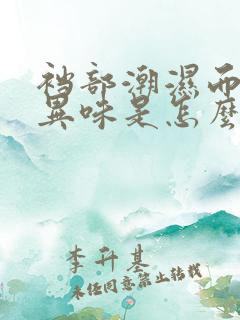 裆部潮濕而
異味是怎麽
李升基
未经同意禁止转载